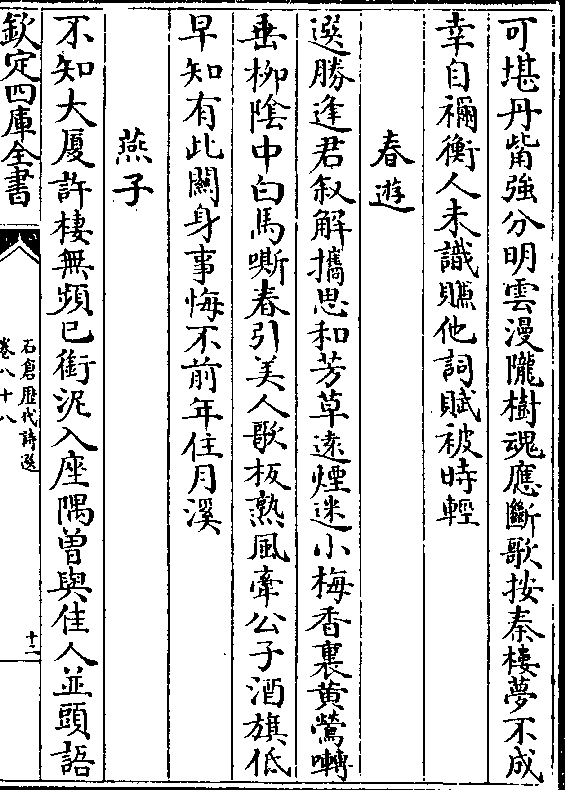 可堪丹觜強分明雲漫隴樹魂應斷歌按秦樓夢不成
幸自禰衡人未識賺他詞賦被時輕
春遊
選勝逢君叙解攜思和芳草遠煙迷小梅香裏黄鶯囀
垂柳陰中白馬嘶春引美人歌板熟風牽公子酒旗低
早知有此關身事悔不前年住月溪
燕子
不知大厦許棲無頻已銜泥入座隅曾與佳人並頭語
欽定四庫全書
石倉歴代詩選
卷八十八
十二